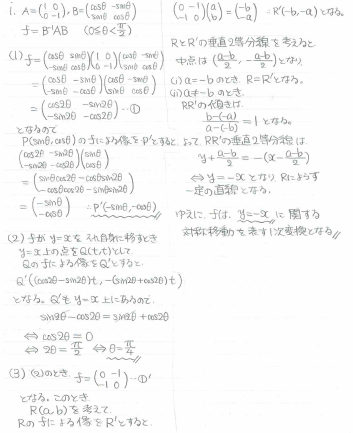 i. A=(1 0 / 0 -1), B=(cosθ -sinθ / sinθ cosθ)
f=B⁻¹AB (0≦θ<π/2)
(1) f=(cosθ sinθ / -sinθ cosθ)(1 0 / 0 -1)(cosθ -sinθ / sinθ cosθ)
=(cosθ -sinθ / -sinθ -cosθ)(cosθ -sinθ / sinθ cosθ)
=(cos2θ -sin2θ / -sin2θ -cos2θ) …①
となるので
P(sinθ, cosθ) の fによる像をP'とすると、
(cos2θ -sin2θ / -sin2θ -cos2θ)(sinθ / cosθ)
=(sinθcos2θ-cosθsin2θ / -cosθcos2θ-sinθsin2θ)
=(-sinθ / -cosθ) ∴P'(-sinθ, -cosθ)
(2) fが y=xを それ自身に移すとき
y=x上の点をQ(t,t)として
Qのfによる像をQ'とすると、
Q'((cos2θ-sin2θ)t, -(sin2θ+cos2θ)t)
となる。Q'も y=x 上にあるので、
sin2θ-cos2θ=sin2θ+cos2θ
⇔ cos2θ=0
⇔ 2θ=π/2 ⇔ θ=π/4
(3) (2)のとき、f=(0 -1 / -1 0) …①'
となる。このとき
R(a,b) を考えて
Rの fによる像を R'とすると、
(0 -1 / -1 0)(a / b)=(-b / -a) ∴R'(-b,-a)となる。
RとR'の垂直2等分線 を考えると
中点は (a-b/2, -a-b/2)となり
(i) a=-bのとき R=R'となる。
(ii) a≠-bのとき、
RR'の傾きは
b-(-a)/a-(-b)=1 となる。
よって、RR'の垂直2等分線は
y+a-b/2=-(x-a-b/2)
⇔ y=-x となり Rによらず
一定の直線となる。
ゆえに、fは、y=-x に関する
対称な移動を表す1次変換となる